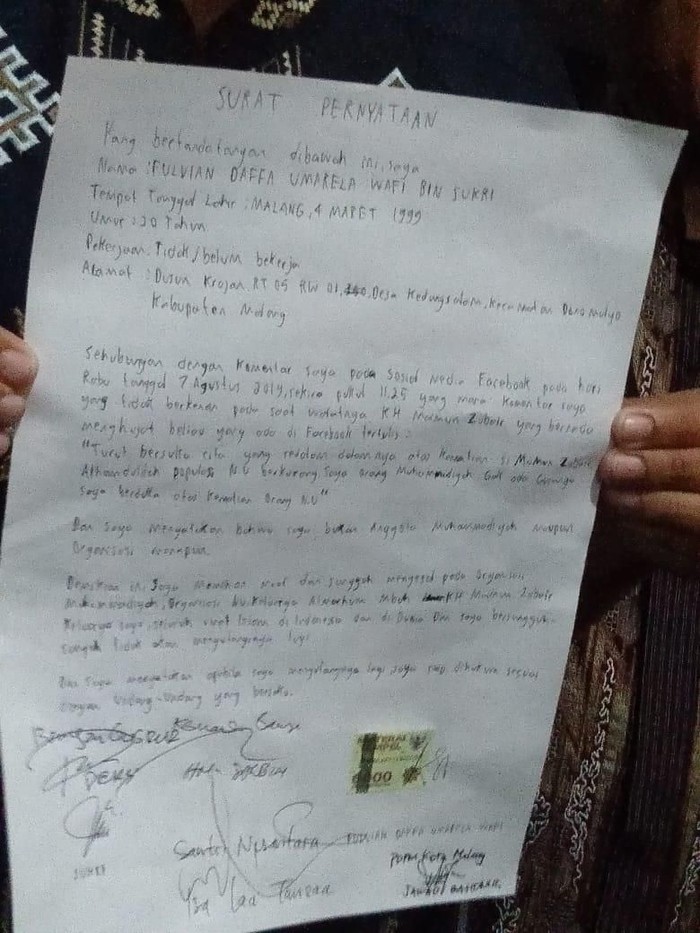 SURAT PERNYATAAN
Yang bertandatangan dibawah ini, saya
Nama : FULVIAN DAFFA UMARELA WAFI BIN SUKRI
Tempat Tanggal Lahir : MALANG, 4 MARET 1999
Umur : 20 Tahun
Pekerjaan : Tidak/belum bekerja
Alamat : Dusun Krajan RT 05 RW 01, Desa Kedungsalam, Kecamatan Donomulyo
Kabupaten Malang
Sehubungan dengan Komentar saya pada Sosial Media Facebook pada hari
Rabu tanggal 7 Agustus 2019, sekira pukul 11.25 yang mana Komentar saya
yang tidak berkenan pada saat wafatnya KH Maimun Zubair yang bersifat
menghujat beliau yang ada di Facebook tertulis :
"Turut bersuka cita yang sedalam dalamnya atas Kematian si Mumun Zubair
Alhamdulillah populasi N.U berkurang, Saya orang Muhammadiyah Gak ada Gunanya
saya berduka atas Kematian Orang N.U"
Dan saya menyatakan bahwa saya bukan Anggota Muhammadiyah maupun
Organisasi manapun.
Demikian ini saya memohon maaf dan sungguh menyesal pada Organisasi
Muhammadiyah, Organisasi NU, Keluarga Almarhum Mbah KH Maimun Zubair
Keluarga saya, seluruh umat Islam di Indonesia dan di Dunia Dan saya bersungguh-
sungguh tidak akan mengulanginya lagi.
Dan saya menyatakan apabila saya mengulanginya lagi, saya siap dihukum sesuai
dengan Undang-Undang yang berlaku.
METERAI
TEMPEL
6000
Santri Nusantara FULVIAN DAFFA UMARELA WAFI
SUKRI
Malang